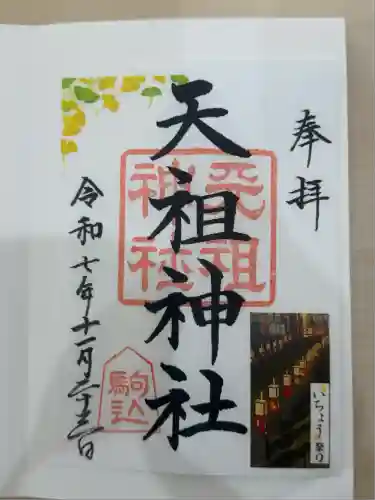 奉拝
天祖神社
天祖
神社
令和七年十一月二十三日
駒込
いちょう祭り